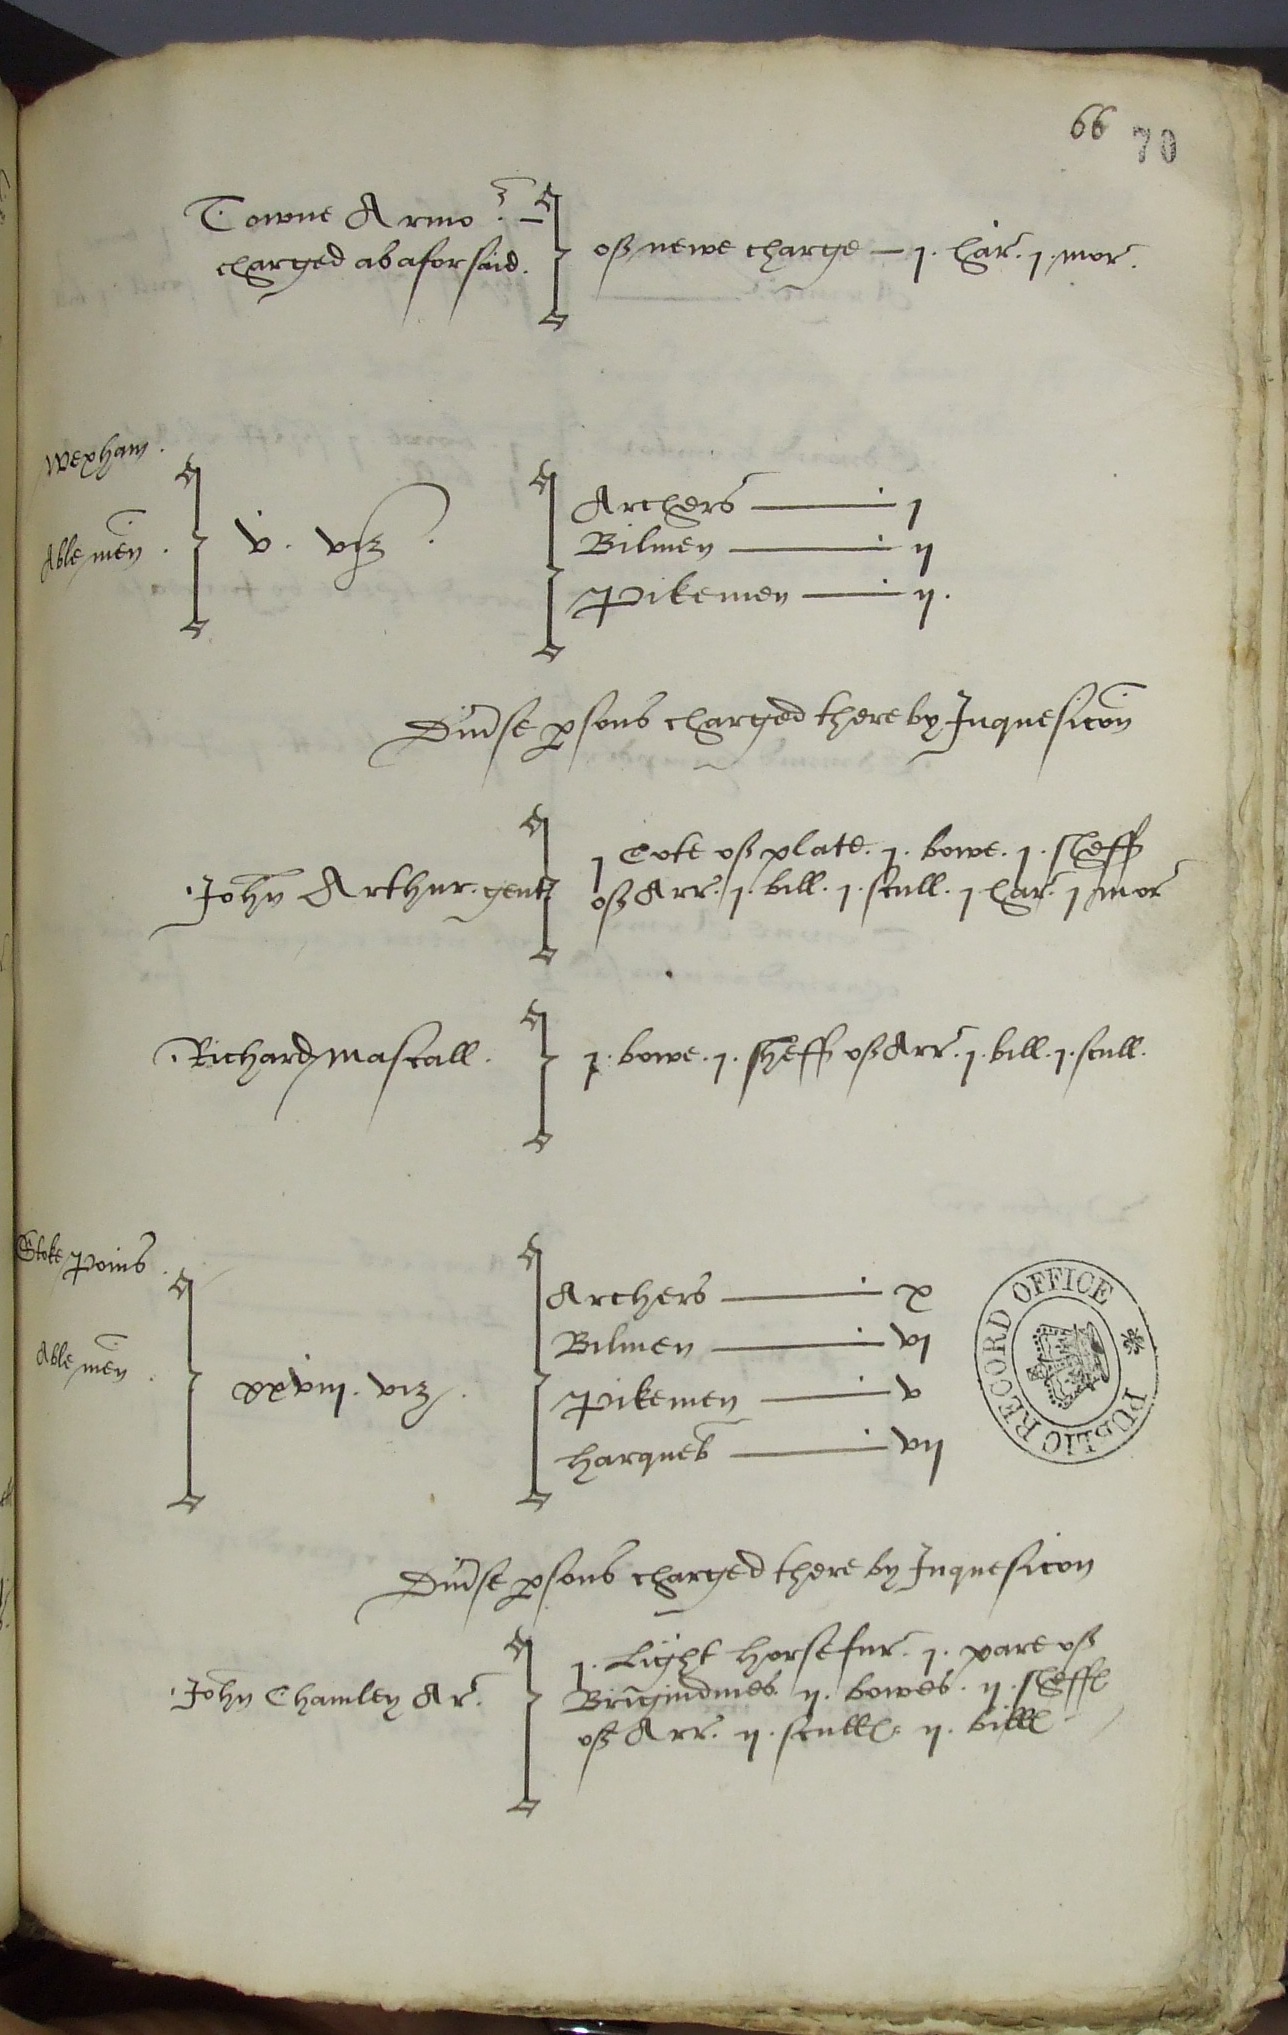 66 70
Towne Armor
charged as aforsaid.
of newe charge — j. har. j. mor.
Wexham.
Able men.
v. viz.
Archers — j
Bilmen — ij
Pikemen — ij.
Divse psons charged there by Inquesicon
John Arthur. gent
j Cote of plate. j. bowe. j. sheff
of Arr. j. bill. j. scull. j har. j mor
Richard Mascall.
j. bowe. j. sheff of Arr. j. bill. j. scull.
Stoke Poins.
Able men.
xxviij. viz.
Archers — x
Bilmen — vj
Pikemen — v
harqueb — vij
PUBLIC RECORD OFFICE
Divse psons charged there by Inquesicon
John Chamley Ar.
j. Light horse fur. j. pare of
Brigindines ij. bowes. ij. sheff
of Arr. ij. scull. ij. bill